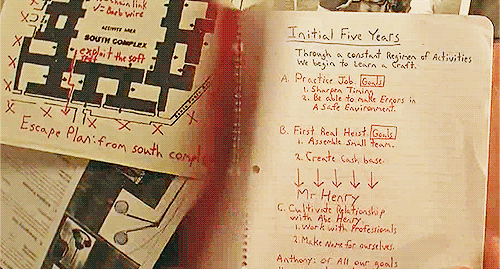 chain link
V = Barb wire
ACTIVITY AREA
SOUTH COMPLEX
exploit the soft
X X X X X X X X
Escape Plan: from south comple
Initial Five Years
Through a constant Regimen of Activities
We begin to Learn a Craft.
A. Practice Job. Goals
1. Sharpen Timing
2. Be able to make Errors in
A Safe Environment.
B. First Real Heist. Goals
1. Assemble small team.
2. Create Cash base.
↓ ↓ ↓ ↓ ↓
Mr Henry
C. Cultivate Relationship
with Abe Henry
1. Work with Professionals
2. Make Name for ourselves.
Anthony: of All our goals